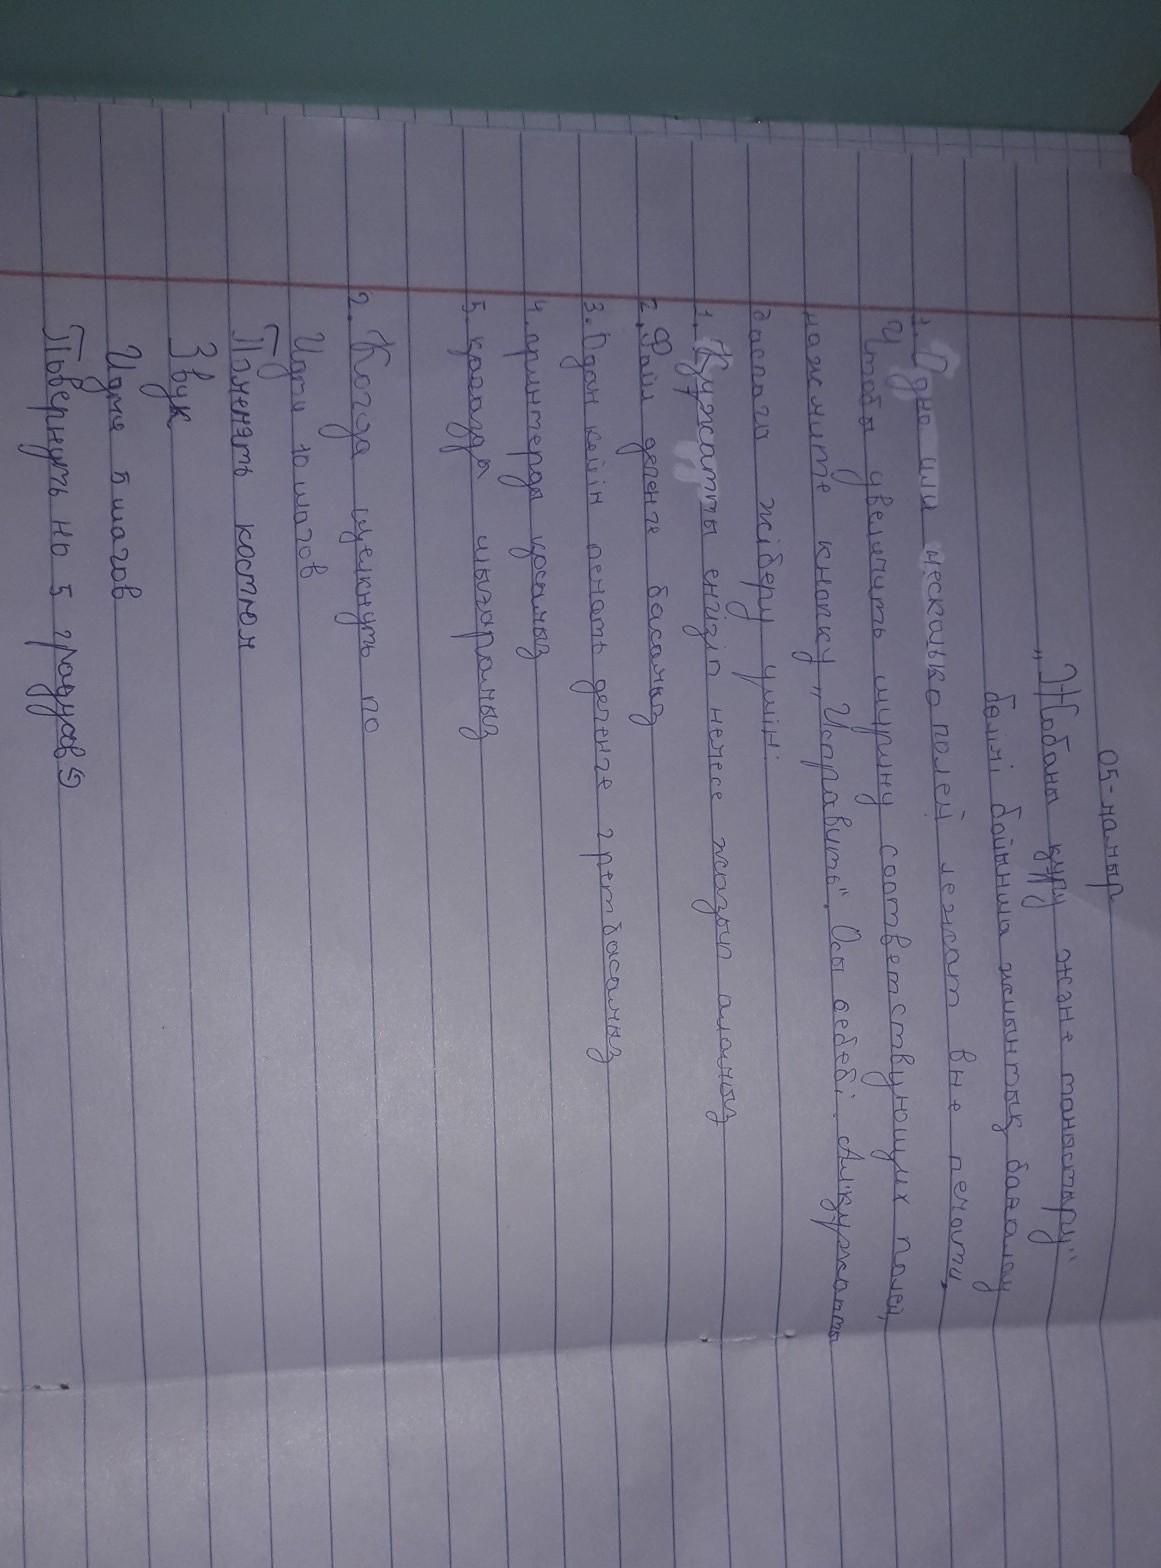 05-наурыз
"Жобаны құру және таныстыру"
бөлімі бойынша жиынтық бағалау
1. Одно или несколько полей лежат вне печати.
Чтобы увеличить ширину соответствующих полей,
нажмите кнопку "Исправить". Осы дебей. Ақжұжатты
баспаға жіберу үшін:
1. Құжатты енгізіп немесе жазып аламыз
2. Файл дегенге басамыз
3. Одан кейін печать дегенге 2 рет басамыз
4. принтерді қосамыз
5. қағазды шығарамыз
2. Когда щелкнуть по
Идти 10 шагов
Поменять костюм
Звук
Идте 5 шагов
Повернуть на 5 градусов 5